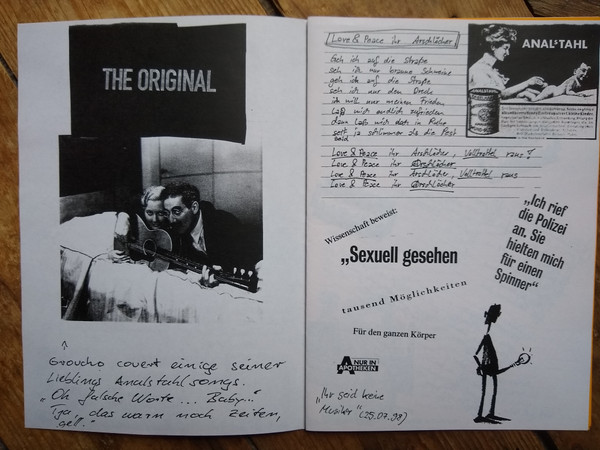 THE ORIGINAL
Groucho covert einige seiner
Lieblings Analstahlsongs.
„Oh falsche Worte... Baby..."
Tja, das warn noch Zeiten,
gell."
Love & Peace ihr Arschlöcher
Geh ich auf die Straße
seh ich nur braune Schweine
geh ich auf die Straße
seh ich nur den Dreck
ich will nur meinen Frieden
Laß mich endlich zufrieden
dann laß mich doch in Ruhe
seid ja schlimmer als die Pest
bald
Love & Peace ihr Arschlöcher, Volltrottel raus!
Love & Peace ihr Arschlöcher
Love & Peace ihr Arschlöcher, Volltrottel raus
Love & Peace ihr Arschlöcher
ANALSTAHL
Wissenschaft beweist:
„Sexuell gesehen
tausend Möglichkeiten
Für den ganzen Körper
A NUR IN
APOTHEKEN
„Ich rief
die Polizei
an. Sie
hielten mich
für einen
Spinner"
„Ihr seid keine
Musiker" (25.07.98)